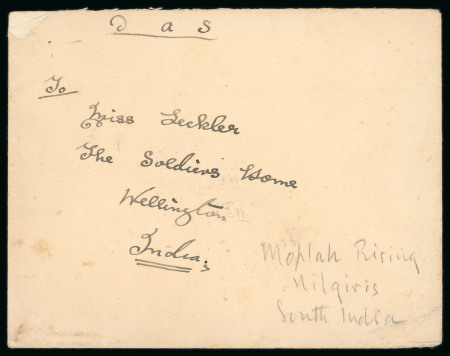 D a S
To
Miss Leckler
The Soldiers Home
Wellington
India.
Moplah Rising
Nilgiris
South India